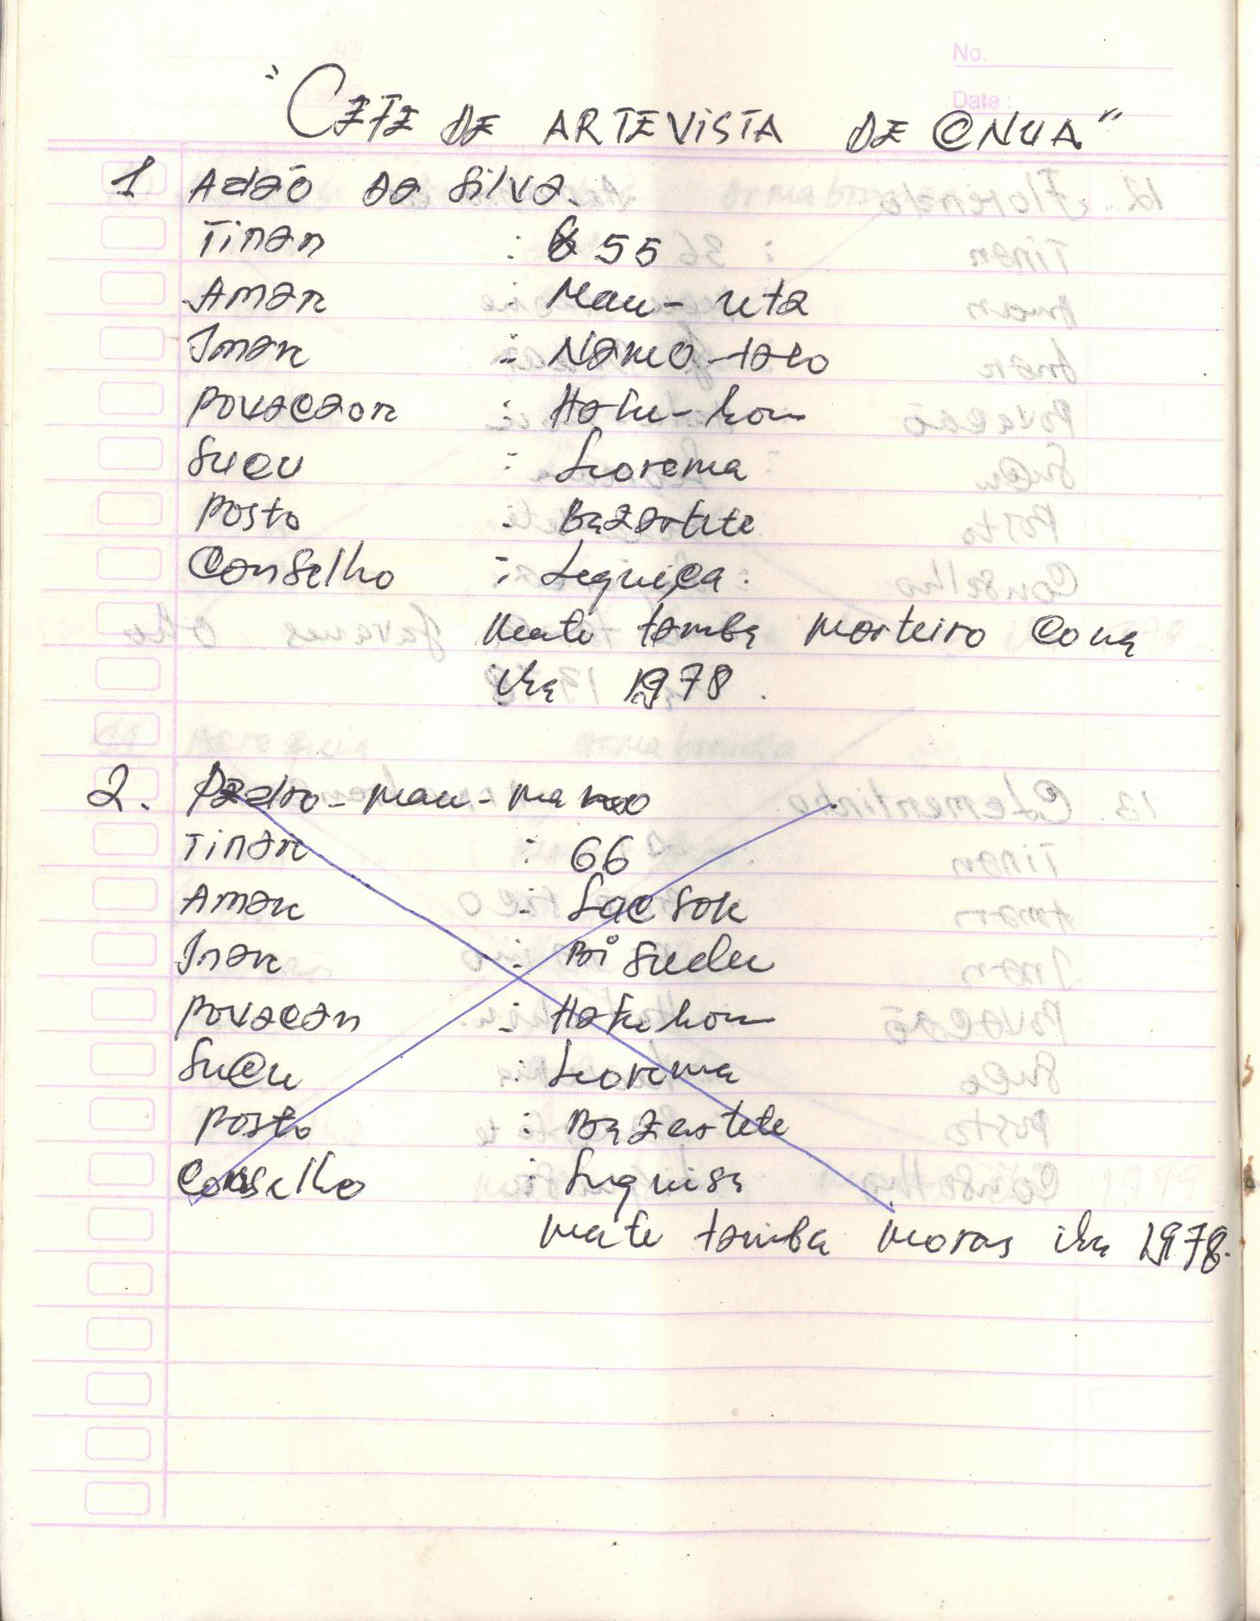 No.
Date:
"CEFE DE ARTEVISTA DE CNUA"
1 Adão da Silva.
Tinan : 55
Aman : Mau-
Inan : Namo-talo
Povacaon : Hatu-hou
Sucu : Leorema
Posto : Bazartete
Conselho : Lequiça.
Mate tamba Morteiro Cona
iha 1978.
2. Pedro-Mau-
Tinan : 66
Aman : Lae sok
Inan : Bi Suelu
Povacan : Hatuhou
Sucu : Leorema
Posto : Bazartete
Conselho : Luquisa
Mate tamba Moras iha 1978.